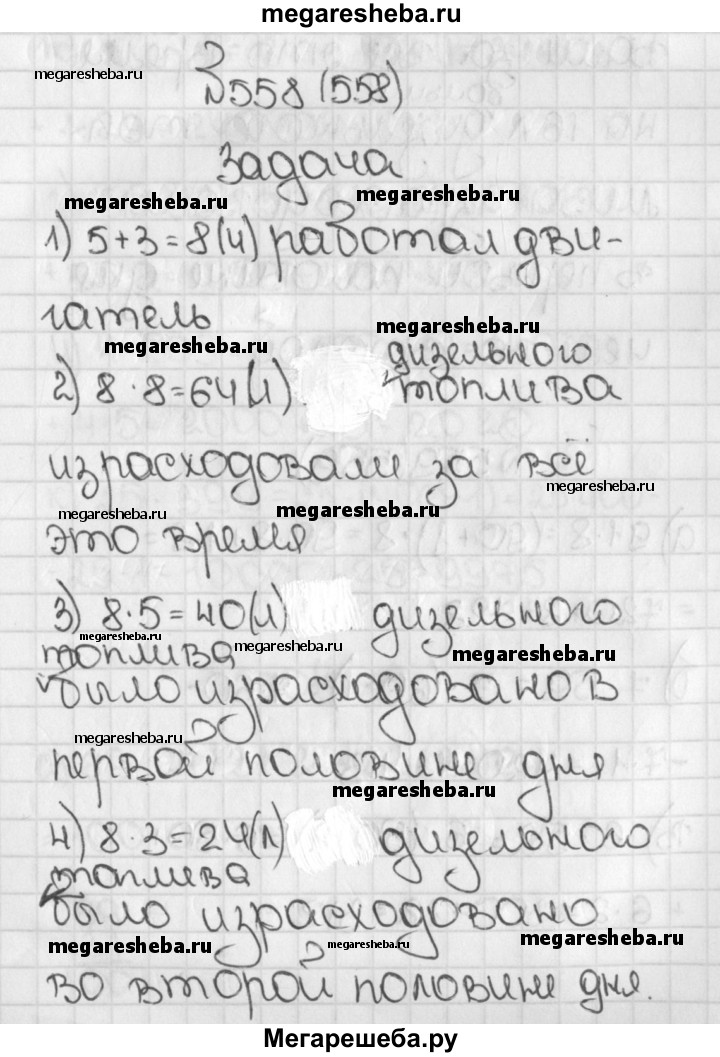 megaresheba.ru
megaresheba.ru
№558 (558)
Задача
megaresheba.ru
megaresheba.ru
1) 5+3=8(ч) работал дви-
гатель
megaresheba.ru
megaresheba.ru
дизельного
2) 8·8=64(л) топлива
израсходовали за всё
megaresheba.ru
megaresheba.ru
megaresheba.ru
это время
3) 8·5=40(л) дизельного
megaresheba.ru
megaresheba.ru
топлива
megaresheba.ru
было израсходовано в
megaresheba.ru
первой половине дня
megaresheba.ru
4) 8·3=24(л) дизельного
топлива
было израсходовано
megaresheba.ru
megaresheba.ru
megaresheba.ru
во второй половине дня.
Мегарешеба.ру